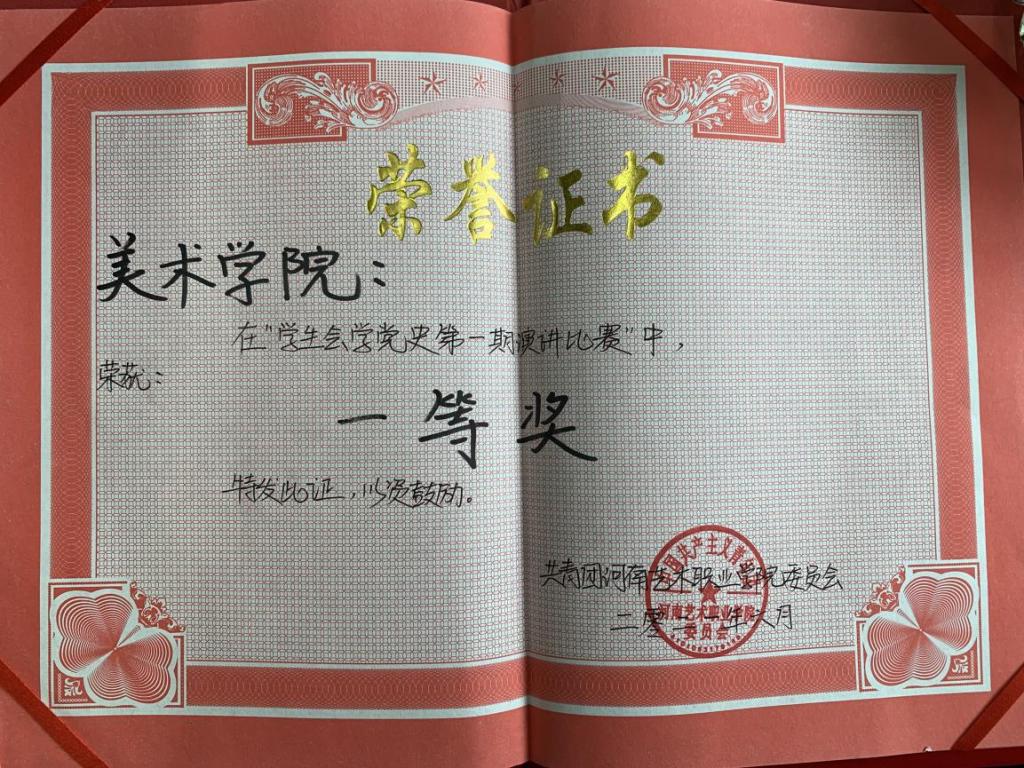 荣誉证书
美术学院：
在"学生会学党史第一期演讲比赛"中，
荣获：
一等奖
特发此证，以资鼓励。
共青团河南艺术职业学院委员会
二零二 年六月
河南艺术职业学院
委员会